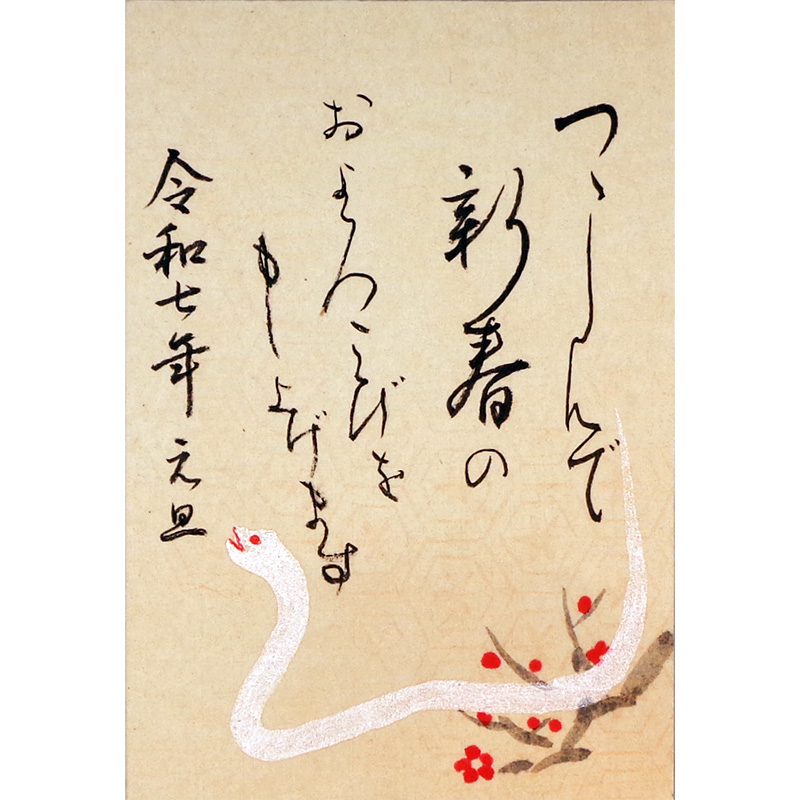 つゝしんで
新春の
およろこびを
もし上げます
令和七年元旦